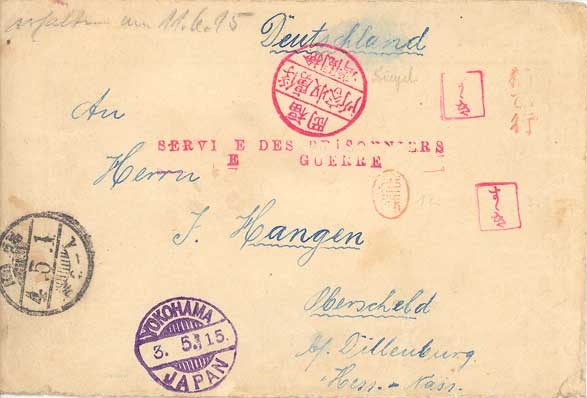 erhalten am 11.6.15
Deutschland
福岡
俘虜収容所
Siegel
SERVI E DES PRISONNIERS
E GUERRE
An
Herrn
J. Hangen
Oberscheld
b/ Dillenburg
Hess.-Nass.
4.5.1
YOKOHAMA
3.5.15.
JAPAN